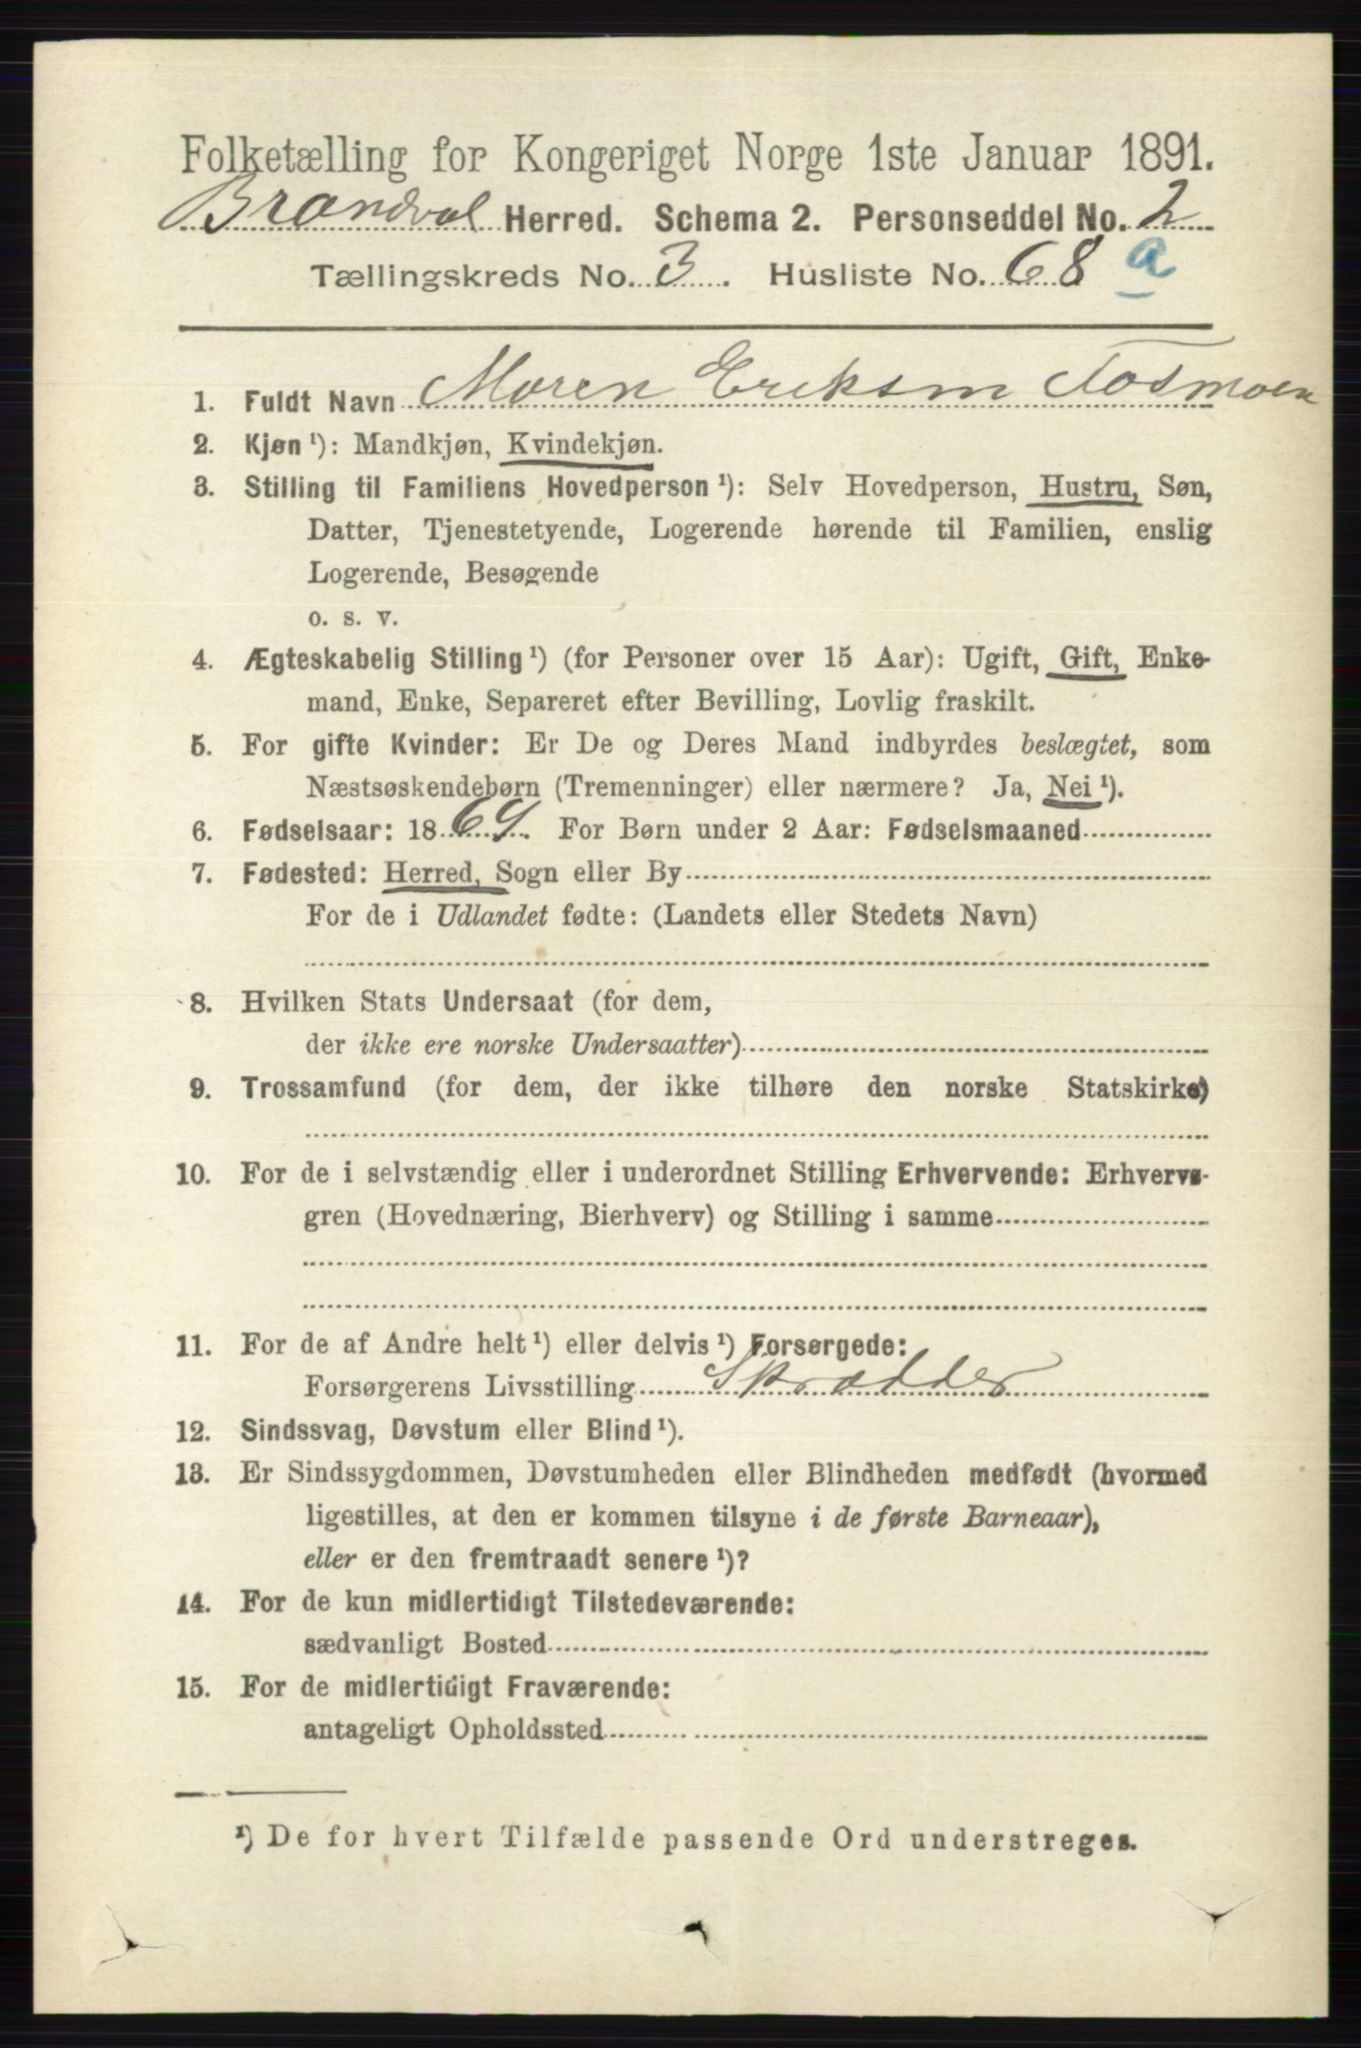 Folketælling for Kongeriget Norge 1ste Januar 1891.
Brandval Herred. Schema 2. Personseddel No. 2
Tællingskreds No. 3. Husliste No. 68 a
1. Fuldt Navn Maren Eriksen Tosmoen
2. Kjøn ¹): Mandkjøn, Kvindekjøn.
3. Stilling til Familiens Hovedperson ¹): Selv Hovedperson, Hustru, Søn,
Datter, Tjenestetyende, Logerende hørende til Familien, enslig
Logerende, Besøgende
o. s. v.
4. Ægteskabelig Stilling ¹) (for Personer over 15 Aar): Ugift, Gift, Enke-
mand, Enke, Separeret efter Bevilling, Lovlig fraskilt.
5. For gifte Kvinder: Er De og Deres Mand indbyrdes beslægtet, som
Næstsøskendebørn (Tremenninger) eller nærmere? Ja, Nei ¹).
6. Fødselsaar: 1869. For Børn under 2 Aar: Fødselsmaaned
7. Fødested: Herred, Sogn eller By
For de i Udlandet fødte: (Landets eller Stedets Navn)
8. Hvilken Stats Undersaat (for dem,
der ikke ere norske Undersaatter)
9. Trossamfund (for dem, der ikke tilhøre den norske Statskirke)
10. For de i selvstændig eller i underordnet Stilling Erhvervende: Erhvervs-
gren (Hovednæring, Bierhverv) og Stilling i samme
11. For de af Andre helt ¹) eller delvis ¹) Forsørgede:
Forsørgerens Livsstilling Skrædder
12. Sindssvag, Døvstum eller Blind ¹).
13. Er Sindssygdommen, Døvstumheden eller Blindheden medfødt (hvormed
ligestilles, at den er kommen tilsyne i de første Barneaar),
eller er den fremtraadt senere ¹)?
14. For de kun midlertidigt Tilstedeværende:
sædvanligt Bosted
15. For de midlertidigt Fraværende:
antageligt Opholdssted
¹) De for hvert Tilfælde passende Ord understreges.